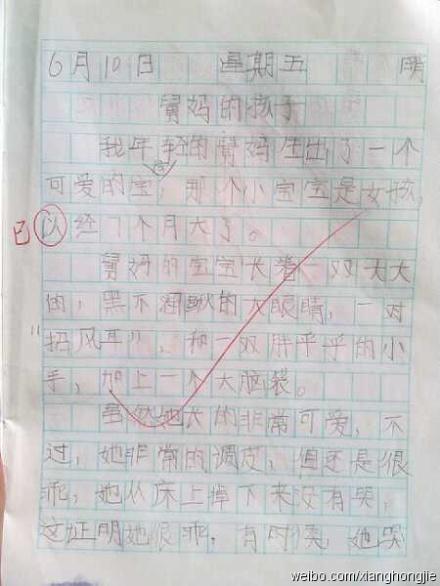 6月10日 星期五 阴
舅妈的孩子
我年轻的舅妈生出了一个
可爱的宝宝,那个小宝宝是女孩,
已以经7个月大了。
舅妈的宝宝长着一双大大
的,黑不溜啾的大眼睛,一对
"招风耳",和一双胖乎乎的小
手,加上一个大脑袋。
虽然她长的非常可爱,不
过,她非常的调皮,但还是很
乖,她从床上掉下来没有哭,
这证明她很乖,有时候,她哭
weibo.com/xianghongjie